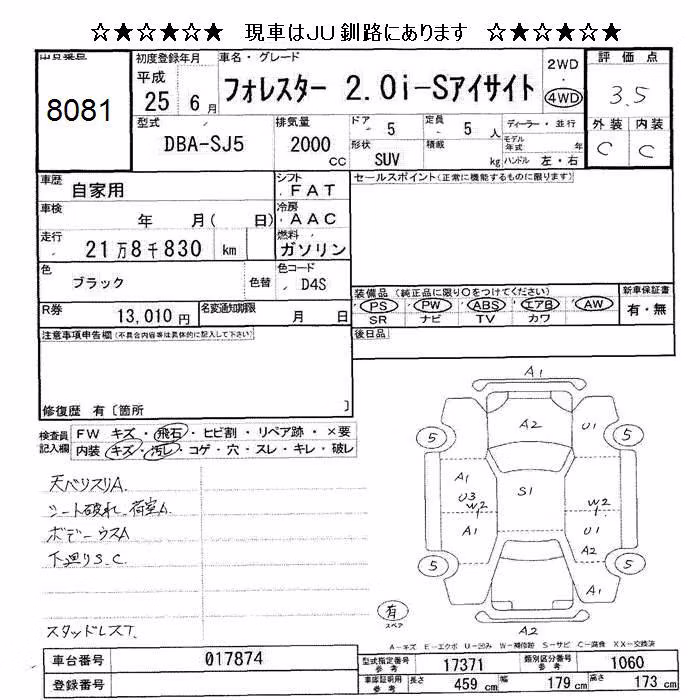 ☆★☆★☆★ 現車はJU釧路にあります ☆★☆★☆★
出品番号
8081
初度登録年月
平成
25 6 月
車名・グレード
フォレスター 2.0i-Sアイサイト
2WD
・
4WD
評価点
3.5
外装 内装
C C
型式
DBA-SJ5
排気量
2000
cc
ドア
5
定員
5 人
ディーラー・並行
モデル年式 年
形状
SUV
積載
kg
ハンドル 左・右
車歴
自家用
シフト
FAT
セールスポイント(正常に機能するものに限ります)
車検
年 月( 日)
冷房
AAC
走行
21万8千830 km
燃料
ガソリン
色
ブラック
色替
色コード
D4S
装備品(純正品に限り○をつけてください)
PS PW ABS エアB AW
SR ナビ TV カワ
新車保証書
有・無
R券
13,010 円
名変通知期限
月 日
後日品
注意事項申告欄(不具合内容等は具体的に記入して下さい)
修復歴 有〔箇所 〕
検査員記入欄
FW キズ・飛石・ヒビ割・リペア跡・×要
内装 キズ・汚レ・コゲ・穴・スレ・キレ・破レ
天ベリスリA.
シート破れ.荷室A
ボデーウスA
下廻りS.C.
スタッドレスT.
A1
A2
5 U1 5
A1
U3 S1 W2
W2
A1 U1
A2
5 5
A1
有
スペア
A2
A-キズ E-エクボ U-凹み W-補修跡 S-サビ C-腐食 XX-交換済
車台番号 017874
型式指定番号 参考 17371
類別区分番号 参考 1060
登録番号
車庫証明用 参考 長さ 459 cm 幅 179 cm 高さ 173 cm